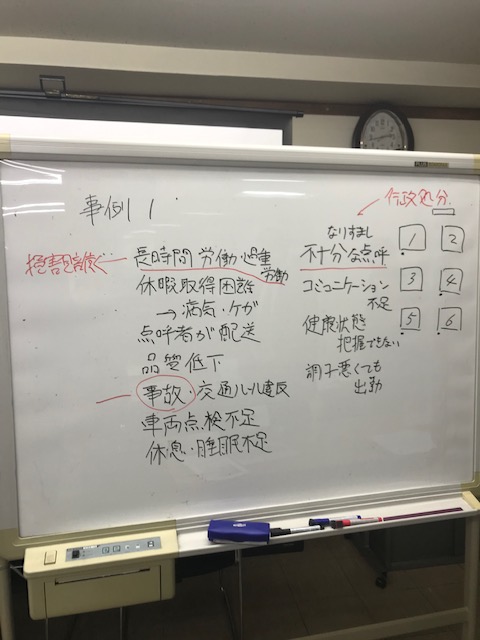 事例 1
長時間労働・過重
労働
休暇取得困難
→ 病気・ケガ
点呼者が配送
品質低下
事故・交通ルール違反
車両点検不足
休息・睡眠不足
行政処分
なりすまし
不十分な点呼
コミュニケーション
不足
健康状態
把握できない
調子悪くても
出勤
1 2
3 4
5 6
PLUS